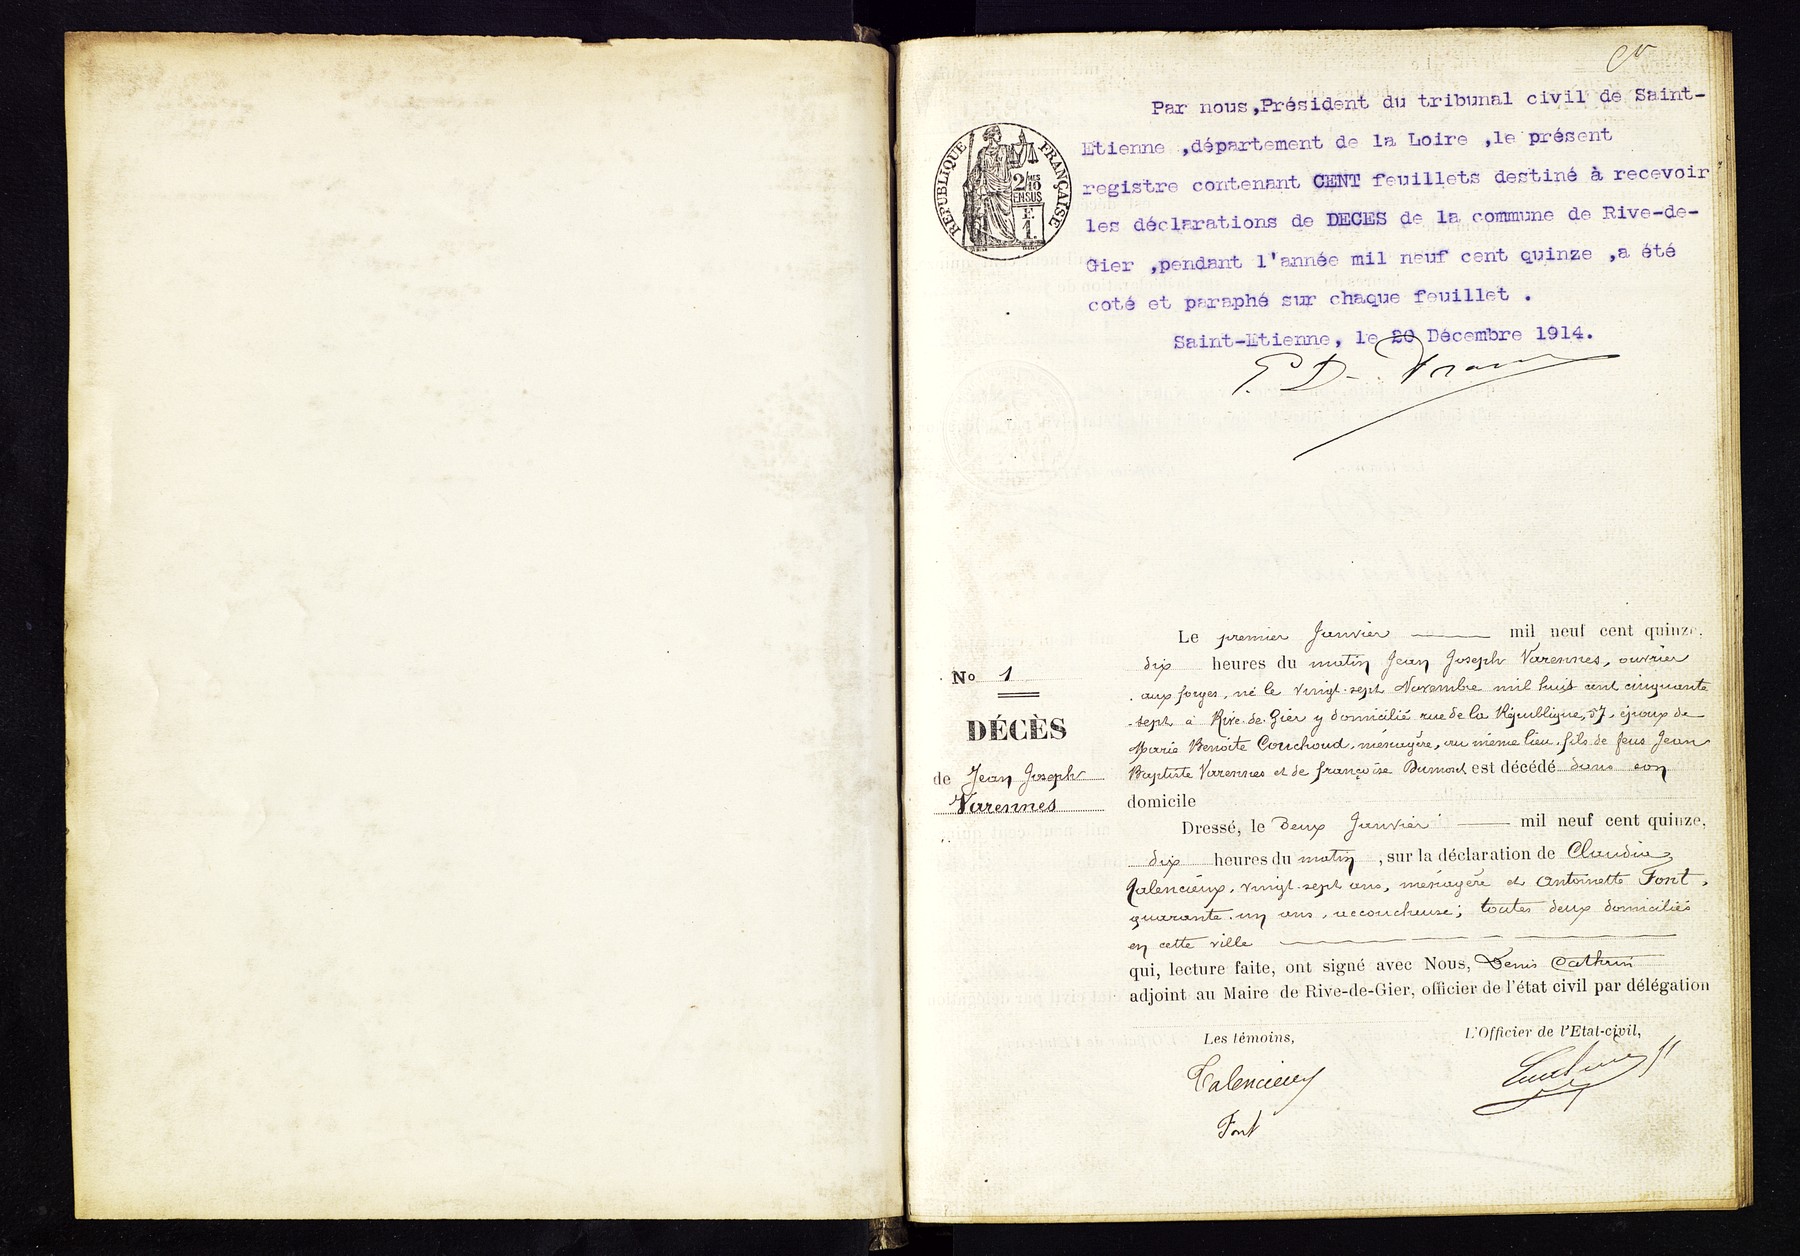 Par nous,Président du tribunal civil de Saint-
Etienne ,département de la Loire ,le présent
registre contenant CENT feuillets destiné à recevoir
les déclarations de DECES de la commune de Rive-de-
Gier ,pendant l'année mil neuf cent quinze ,a été
coté et paraphé sur chaque feuillet .
Saint-Etienne, le 20 Décembre 1914.
REPUBLIQUE FRANÇAISE
2/10
EN SUS
F.
1.
No 1
DÉCÈS
de Jean Joseph
Varennes
Le premier Janvier mil neuf cent quinze,
dix heures du matin Jean Joseph Varennes, ouvrier
aux forges, né le vingt-sept Novembre mil huit cent cinquante
sept à Rive-de-Gier y domicilié rue de la République, 57, époux de
Marie Benoite Couchoud, ménagère, au même lieu, fils de feus Jean
Baptiste Varennes et de françoise Dumont est décédé dans son
domicile
Dressé, le Deux Janvier mil neuf cent quinze,
dix heures du matin, sur la déclaration de Claudia
Talencieux, vingt-sept ans, ménagère et Antoinette Font,
quarante-un ans, accoucheuse; toutes deux domiciliés
en cette ville
qui, lecture faite, ont signé avec Nous, Denis Cathrin
adjoint au Maire de Rive-de-Gier, officier de l'état civil par délégation
Les témoins,
L'Officier de l'Etat-civil,
Talencieux
Font